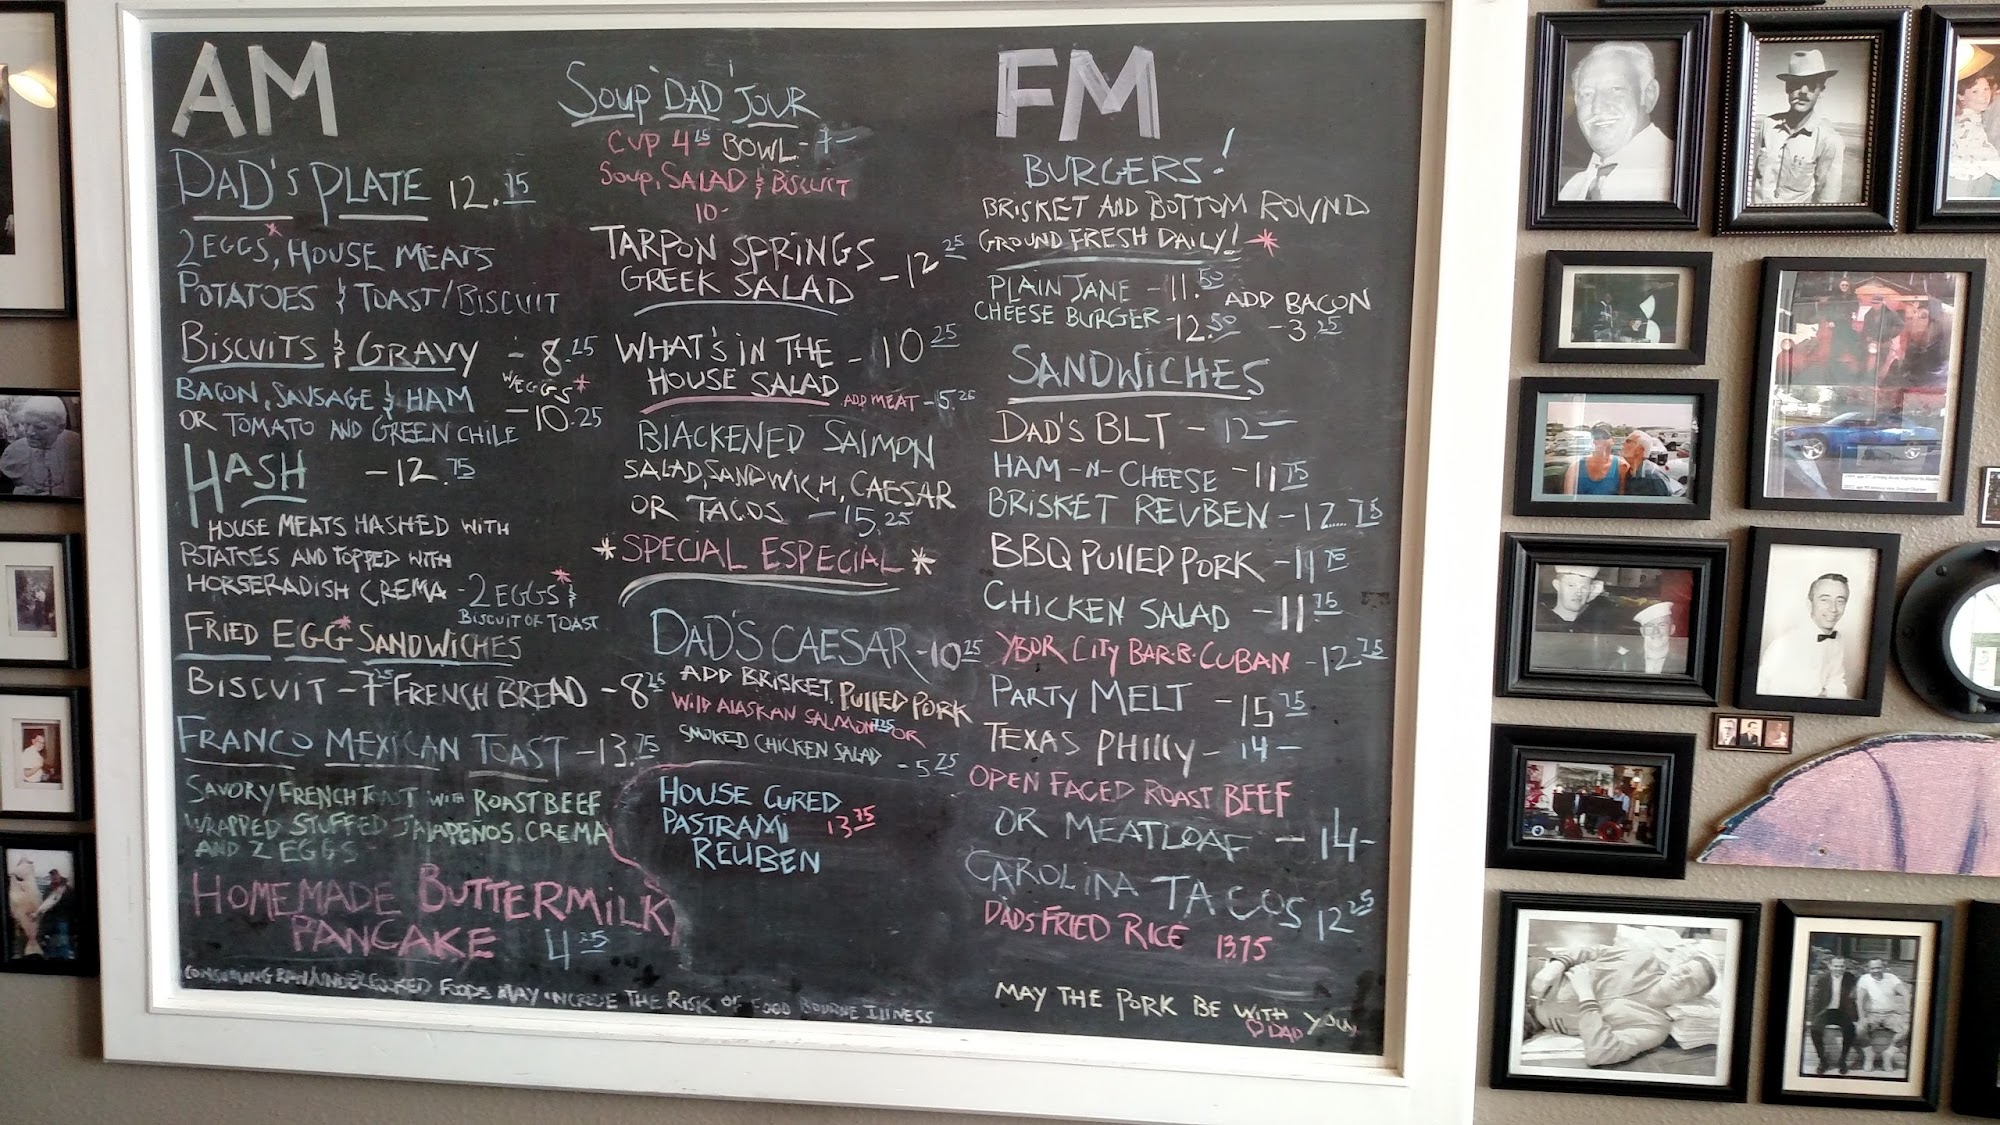 AM
DAD'S PLATE 12.75
2 EGGS*, HOUSE MEATS
POTATOES & TOAST/BISCUIT
BISCUITS & GRAVY - 8.25
W/EGGS* - 10.25
BACON, SAUSAGE & HAM
OR TOMATO AND GREEN CHILE
HASH - 12.75
HOUSE MEATS HASHED WITH
POTATOES AND TOPPED WITH
HORSERADISH CREMA - 2 EGGS* &
BISCUIT OF TOAST
FRIED EGG* SANDWICHES
BISCUIT - 7.25 FRENCH BREAD - 8.25
FRANCO MEXICAN TOAST - 13.75
SAVORY FRENCH TOAST WITH ROAST BEEF
WRAPPED STUFFED JALAPENOS, CREMA
AND 2 EGGS
HOMEMADE BUTTERMILK
PANCAKE 4.25
CONSUMING RAW/UNDERCOOKED FOODS MAY INCREASE THE RISK OF FOOD BOURNE ILLNESS
SOUP 'DAD' JOUR
CUP 4.25 BOWL - 7 -
SOUP, SALAD & BISCUIT
10 -
TARPON SPRINGS
GREEK SALAD - 12.25
WHAT'S IN THE
HOUSE SALAD - 10.25
ADD MEAT - 5.25
BLACKENED SALMON
SALAD, SANDWICH, CAESAR
OR TACOS - 15.25
*SPECIAL ESPECIAL*
DAD'S CAESAR - 10.25
ADD BRISKET, PULLED PORK
WILD ALASKAN SALMON 7.25 OR
SMOKED CHICKEN SALAD - 5.25
HOUSE CURED
PASTRAMI 13.75
REUBEN
FM
BURGERS!
BRISKET AND BOTTOM ROUND
GROUND FRESH DAILY! *
PLAIN JANE - 11.50
CHEESE BURGER - 12.50
ADD BACON
- 3.25
SANDWICHES
DAD'S BLT - 12 -
HAM -N- CHEESE - 11.75
BRISKET REUBEN - 12.75
BBQ PULLED PORK - 11.75
CHICKEN SALAD - 11.75
YBOR CITY BAR-B-CUBAN - 12.75
PARTY MELT - 15.75
TEXAS PHILLY - 14 -
OPEN FACED ROAST BEEF
OR MEATLOAF - 14 -
CAROLINA TACOS 12.25
DADS FRIED RICE 13.75
MAY THE PORK BE WITH YOU,
♡ DAD